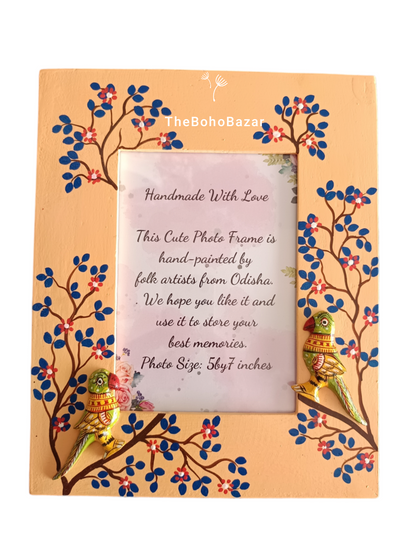 TheBohoBazar
Handmade With Love
This Cute Photo Frame is
hand-painted by
folk artists from Odisha.
. We hope you like it and
use it to store your
best memories.
Photo Size: 5by7 inches